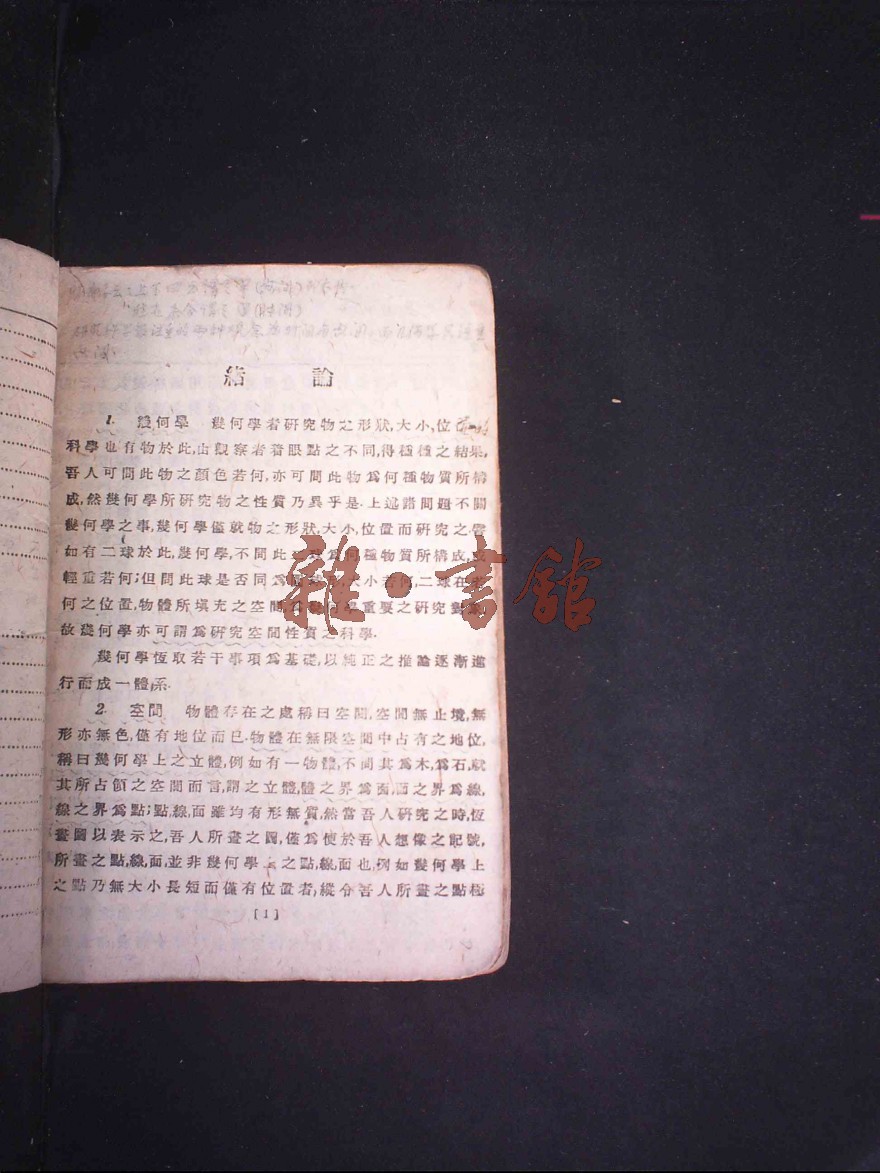 緒 論
1. 幾何學 幾何學者研究物之形狀,大小,位
科學也有物於此,由觀察者着眼點之不同,得種種之結果,
吾人可問此物之顏色若何,亦可問此物爲何種物質所構
成,然幾何學所研究物之性質乃異乎是.上述諸問題不關
幾何學之事,幾何學僅就物之形狀,大小,位置而研究之譬
如有二球於此,幾何學,不問此二球爲何種物質所構成,或
輕重若何;但問此球是否同爲 大小若何,二球在
何之位置,物體所填充之空間爲幾何學重要之研究對象,
故幾何學亦可謂爲研究空間性質之科學.
幾何學恆取若干事項爲基礎,以純正之推論逐漸進
行而成一體系.
2. 空間 物體存在之處稱曰空間,空間無止境,無
形亦無色,僅有地位而已.物體在無限空間中占有之地位,
稱曰幾何學上之立體,例如有一物體,不問其爲木,爲石,就
其所占領之空間而言,謂之立體,體之界爲面,面之界爲線,
線之界爲點;點,線,面雖均有形無質,然當吾人研究之時,恆
畫圖以表示之,吾人所畫之圖,僅爲便於吾人想像之記號,
所畫之點,線,面,並非幾何學上之點,線,面也,例如幾何學上
之點乃無大小長短而僅有位置者,縱令吾人所畫之點極
[1]
雜·書館